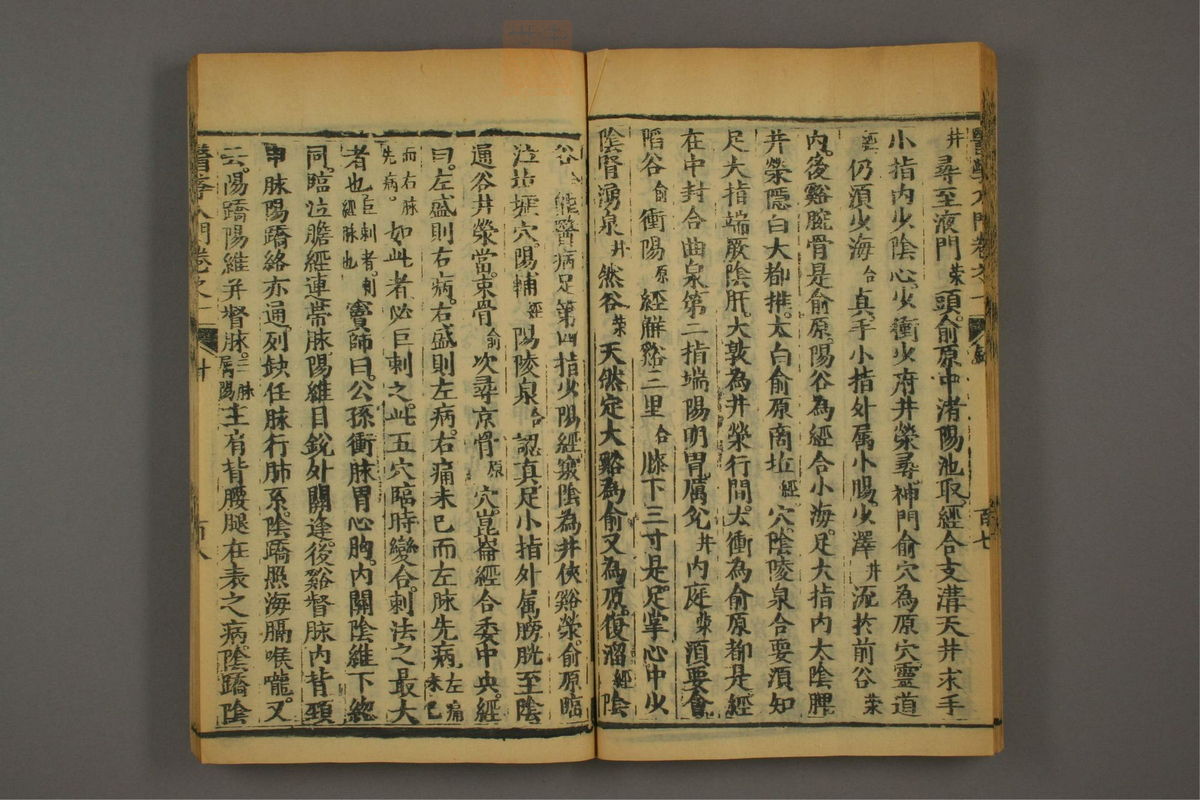 醫學入門卷之一
百七
井尋至液門榮頭俞原中渚陽池取經合支溝天井求手
小指內少陰心少衝火府井榮尋神門俞穴為原穴靈道
經仍須少海合真手小指外属小腸少澤井流於前谷榮
內後谿腕骨是俞原陽谷為經合小海足大指內太陰脾
井榮隱白大都推太白俞原商坵經穴陰陵泉合要須知
足大指端厥陰肝大敦為井榮行間太衝為俞原都是經
在中封合曲泉第二指端陽明胃厲兌井內庭榮須要會
陷谷俞衝陽原經解谿三里合膝下三寸是足掌心中少
陰腎湧泉井然谷榮天然定大谿為俞又為原復溜經陰
谷合能醫病足第四指少陽經竅陰為井俠谿榮俞原臨
泣坵墟穴陽輔經陽陵泉合認真足小指外属膀胱至陰
通谷井榮當束骨俞次尋京骨原穴崑崙經合委中央經
曰左盛則右病右盛則左病右痛未已而左脉先病左痛未已
而右脉先病如此者必巨刺之此五穴臨時變合刺法之最大
者也巨刺者刺經脉也竇師曰公孫衝脉胃心胸內關陰維下緫
同臨泣膽經連帶脉陽維目銳外關逢後谿督脉內背頸
申脉陽蹻絡亦通列缺任脉行肺系陰蹻照海膈喉嚨又
云陽蹻陽維并督脉三脉属陽主肩背腰腿在表之病陰蹻陰
醫學入門卷之一
百八